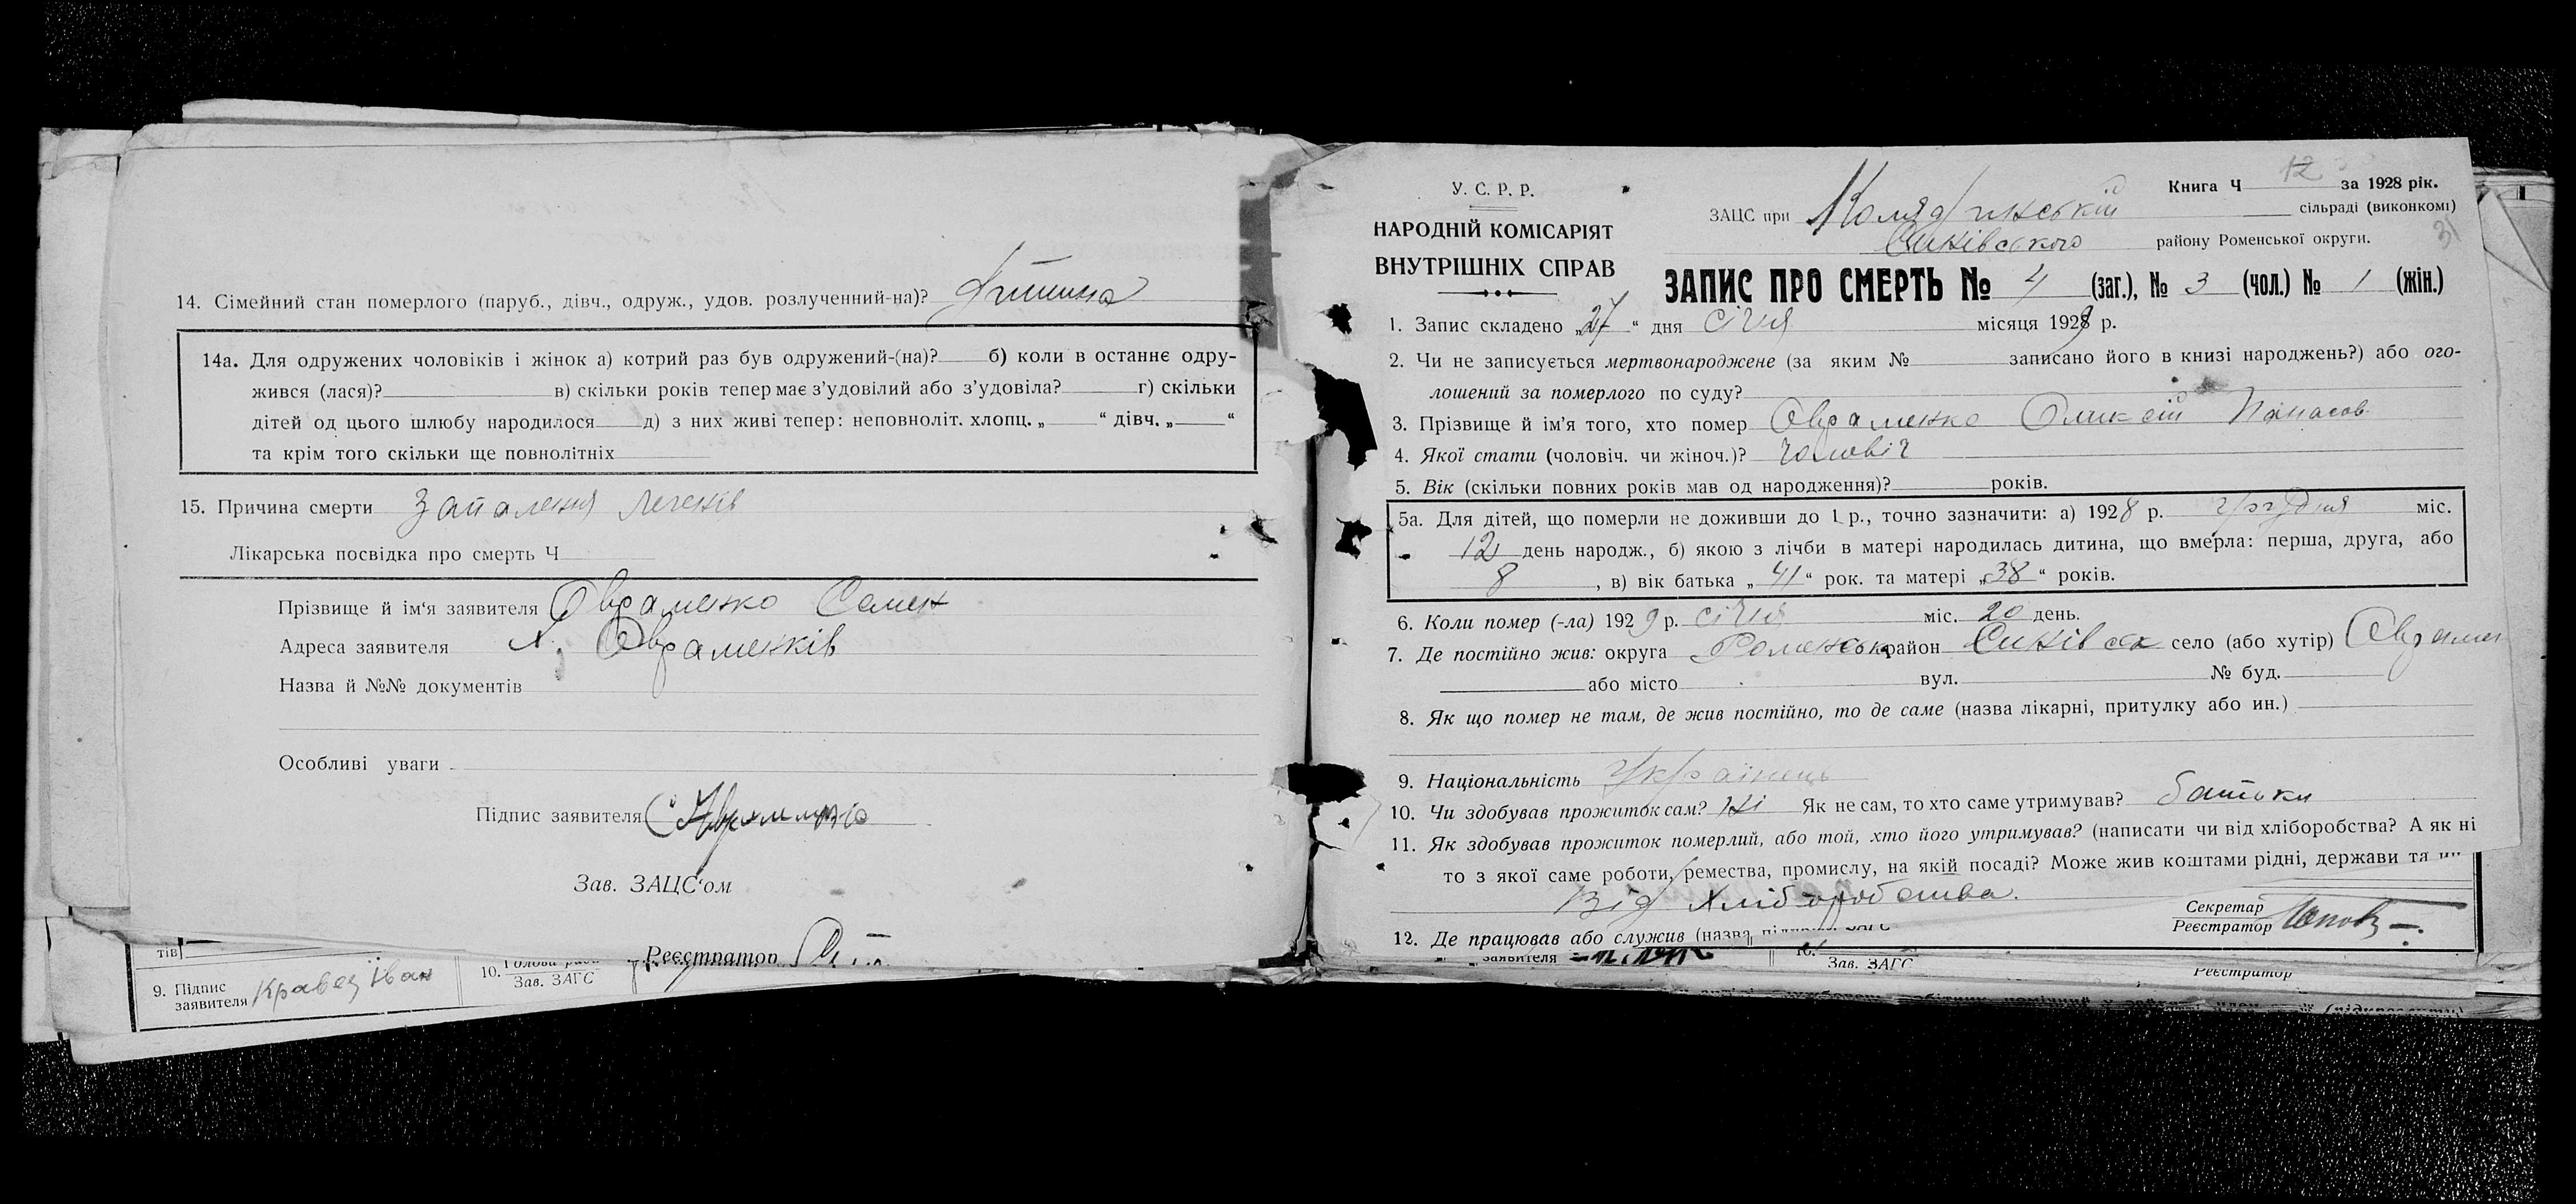 14. Сімейний стан померлого (паруб., дівч., одруж., удов. розлученний-на)? Дитина
14а. Для одружених чоловіків і жінок а) котрий раз був одружений-(на)? б) коли в останнє одру-
жився (лася)? в) скільки років тепер має з’удовілий або з’удовіла? г) скільки
дітей од цього шлюбу народилося д) з них живі тепер: неповноліт. хлопц. „ “ дівч. „ “
та крім того скільки ще повнолітніх
15. Причина смерти Запалення легенів
Лікарська посвідка про смерть Ч
Прізвище й ім‘я заявителя Овраменко Семен
Адреса заявителя х. Овраменків
Назва й №№ документів
Особливі уваги
Підпис заявителя
Зав. ЗАЦС‘ом
Реєстратор
тів
9. Підпис заявителя Кравец Иван
10. Голова ради
Зав. ЗАГС
У. С. Р. Р.
НАРОДНІЙ КОМІСАРІЯТ
ВНУТРІШНІХ СПРАВ
Книга Ч 12 за 1928 рік.
ЗАЦС при Колядинській сільраді (виконкомі)
Синівського району Роменської округи.
31
ЗАПИС ПРО СМЕРТЬ № 4 (заг.), № 3 (чол.) № 1 (жін.)
1. Запис складено „27“ дня січня місяця 1929 р.
2. Чи не записується мертвонароджене (за яким № записано його в книзі народжень?) або ого-
лошений за померлого по суду?
3. Прізвище й ім’я того, хто помер Овраменко Олексій Панасов
4. Якої стати (чоловіч. чи жіноч.)? Чоловіч
5. Вік (скільки повних років мав од народження)? років.
5а. Для дітей, що померли не доживши до 1 р., точно зазначити: а) 1928 р. грудня міс.
12 день народж., б) якою з лічби в матері народилась дитина, що вмерла: перша, друга, або
8, в) вік батька „41“ рок. та матері „38“ років.
6. Коли помер (-ла) 1929 р. січня міс. 20 день.
7. Де постійно жив: округа Роменськ район Синівськ село (або хутір) Оврамен
або місто вул. № буд.
8. Як що помер не там, де жив постійно, то де саме (назва лікарні, притулку або ин.)
9. Національність Українець
10. Чи здобував прожиток сам? Ні Як не сам, то хто саме утримував? батьки
11. Як здобував прожиток померлий, або той, хто його утримував? (написати чи від хліборобства? А як ні
то з якої саме роботи, ремества, промислу, на якій посаді? Може жив коштами рідні, держави та
Від хліборобства.
12. Де працював або служив (назва
Секретар
Реєстратор
заявителя
Зав. ЗАГС
Реєстратор